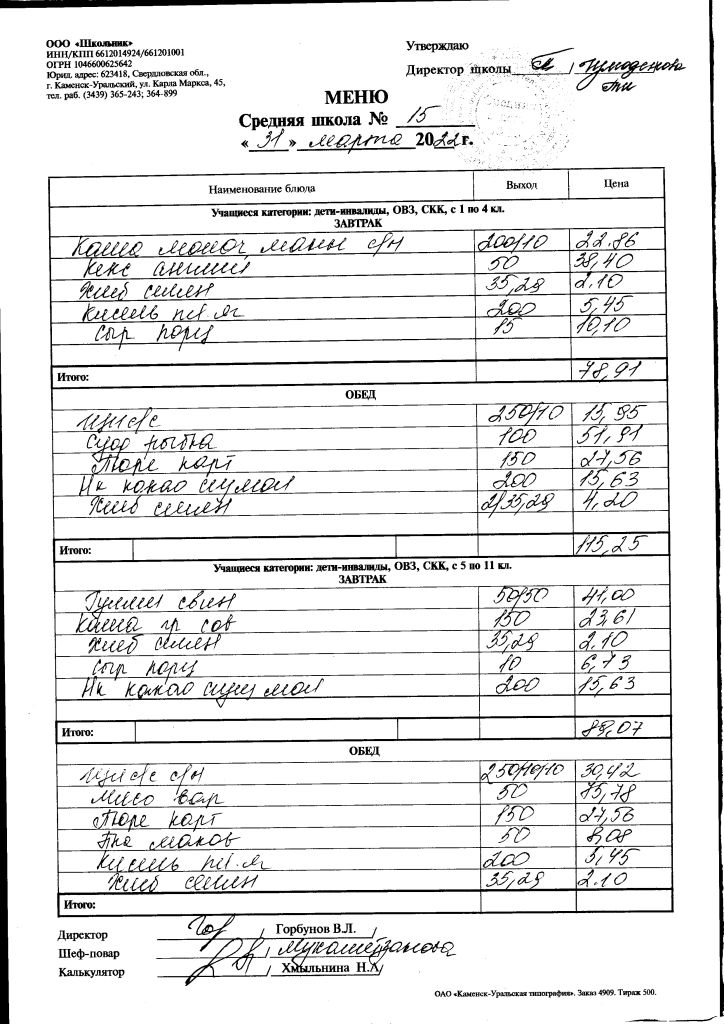 ООО «Школьник»
ИНН/КПП 6612014924/661201001
ОГРН 1046600625642
Юрид. адрес: 623418, Свердловская обл.,
г. Каменск-Уральский, ул. Карла Маркса, 45,
тел. раб. (3439) 365-243; 364-899
Утверждаю
Директор школы
МЕНЮ
Средняя школа № 15
«31» марта 2022 г.
Наименование блюда Выход Цена
Учащиеся категории: дети-инвалиды, ОВЗ, СКК, с 1 по 4 кл.
ЗАВТРАК
Каша молоч манн с/м 200/10 22.86
Кекс англий 50 38,40
Хлеб семен 35,29 2.10
Кисель пл.яг 200 5,45
Сыр порц 15 10,10
Итого: 78,91
ОБЕД
Щи с/с 250/10 15,95
Суфл рыбна 100 51,91
Пюре карт 150 27,56
Нк какао сгу мол 200 15,63
Хлеб семен 2/35,29 4,20
Итого: 115,25
Учащиеся категории: дети-инвалиды, ОВЗ, СКК, с 5 по 11 кл.
ЗАВТРАК
Гуляш свин 50/50 41,00
Каша гр 150 23,61
Хлеб семен 35,29 2.10
Сыр порц 10 6,73
Нк какао сгущ мол 200 15,63
Итого: 89,07
ОБЕД
Щи с/с с/м 250/10/10 30,42
Мясо вар 50 75,78
Пюре карт 150 27,56
маков 50 8,08
Кисель пл.яг 200 5,45
Хлеб семен 35,29 2.10
Итого:
Директор / Горбунов В.Л. /
Шеф-повар /
Калькулятор / Хмыльнина Н.А/
ОАО «Каменск-Уральская типография». Заказ 4909. Тираж 500.